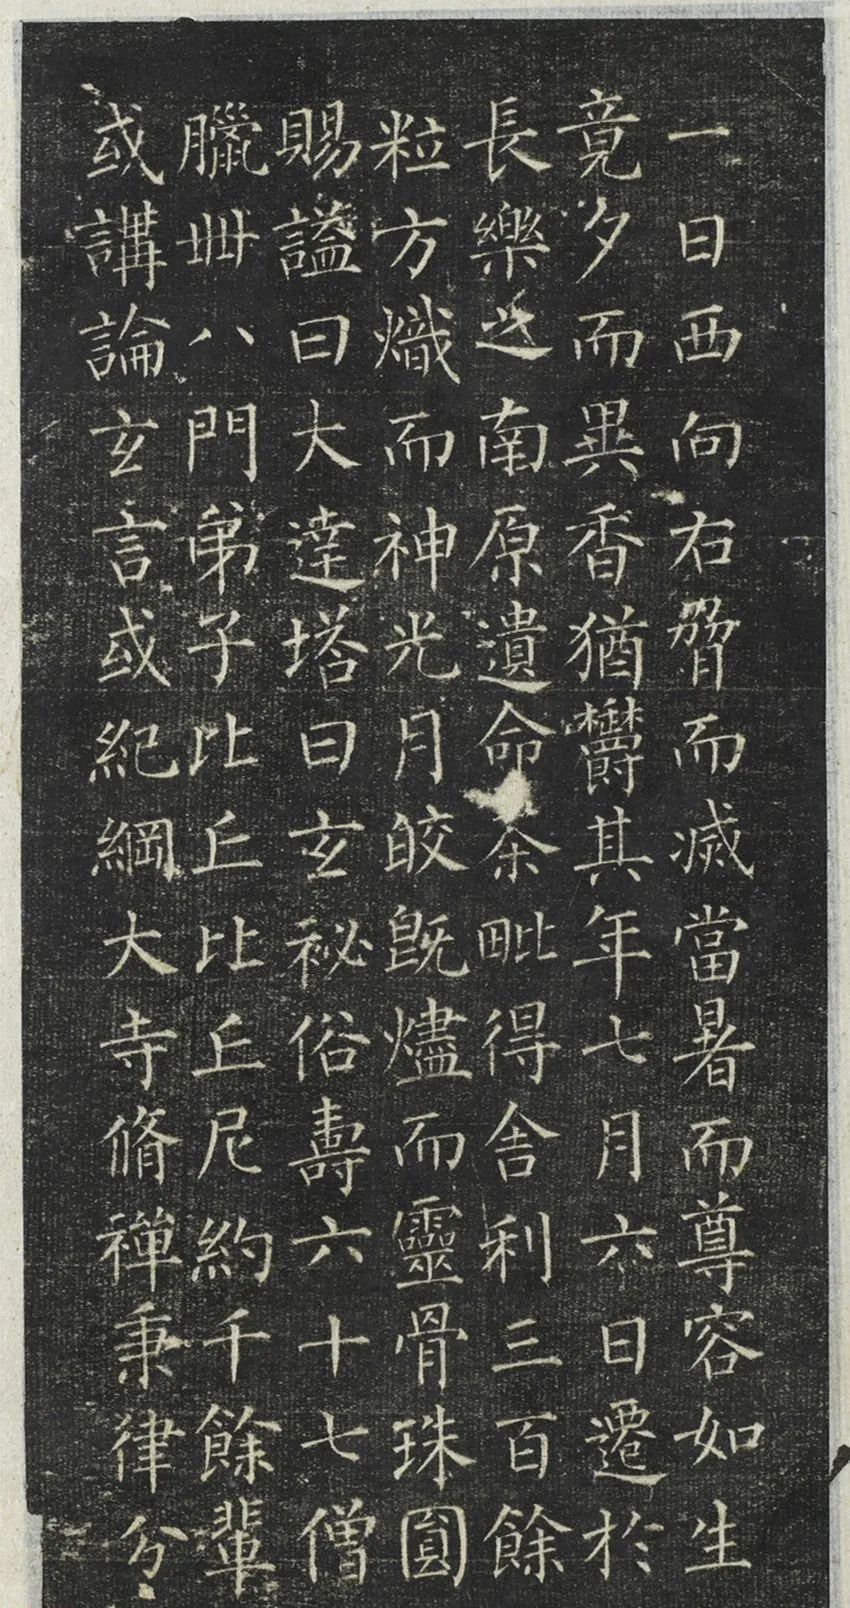 一日西向右脅而滅當暑而尊容如生
竟夕而異香猶欝其年七月六日遷於
長樂之南原遺命荼毗得舍利三百餘
粒方熾而神光月皎既燼而靈骨珠圓
賜謚曰大達塔曰玄祕俗壽六十七僧
臘卌八門弟子比丘比丘尼約千餘輩
或講論玄言或紀綱大寺脩禪秉律分